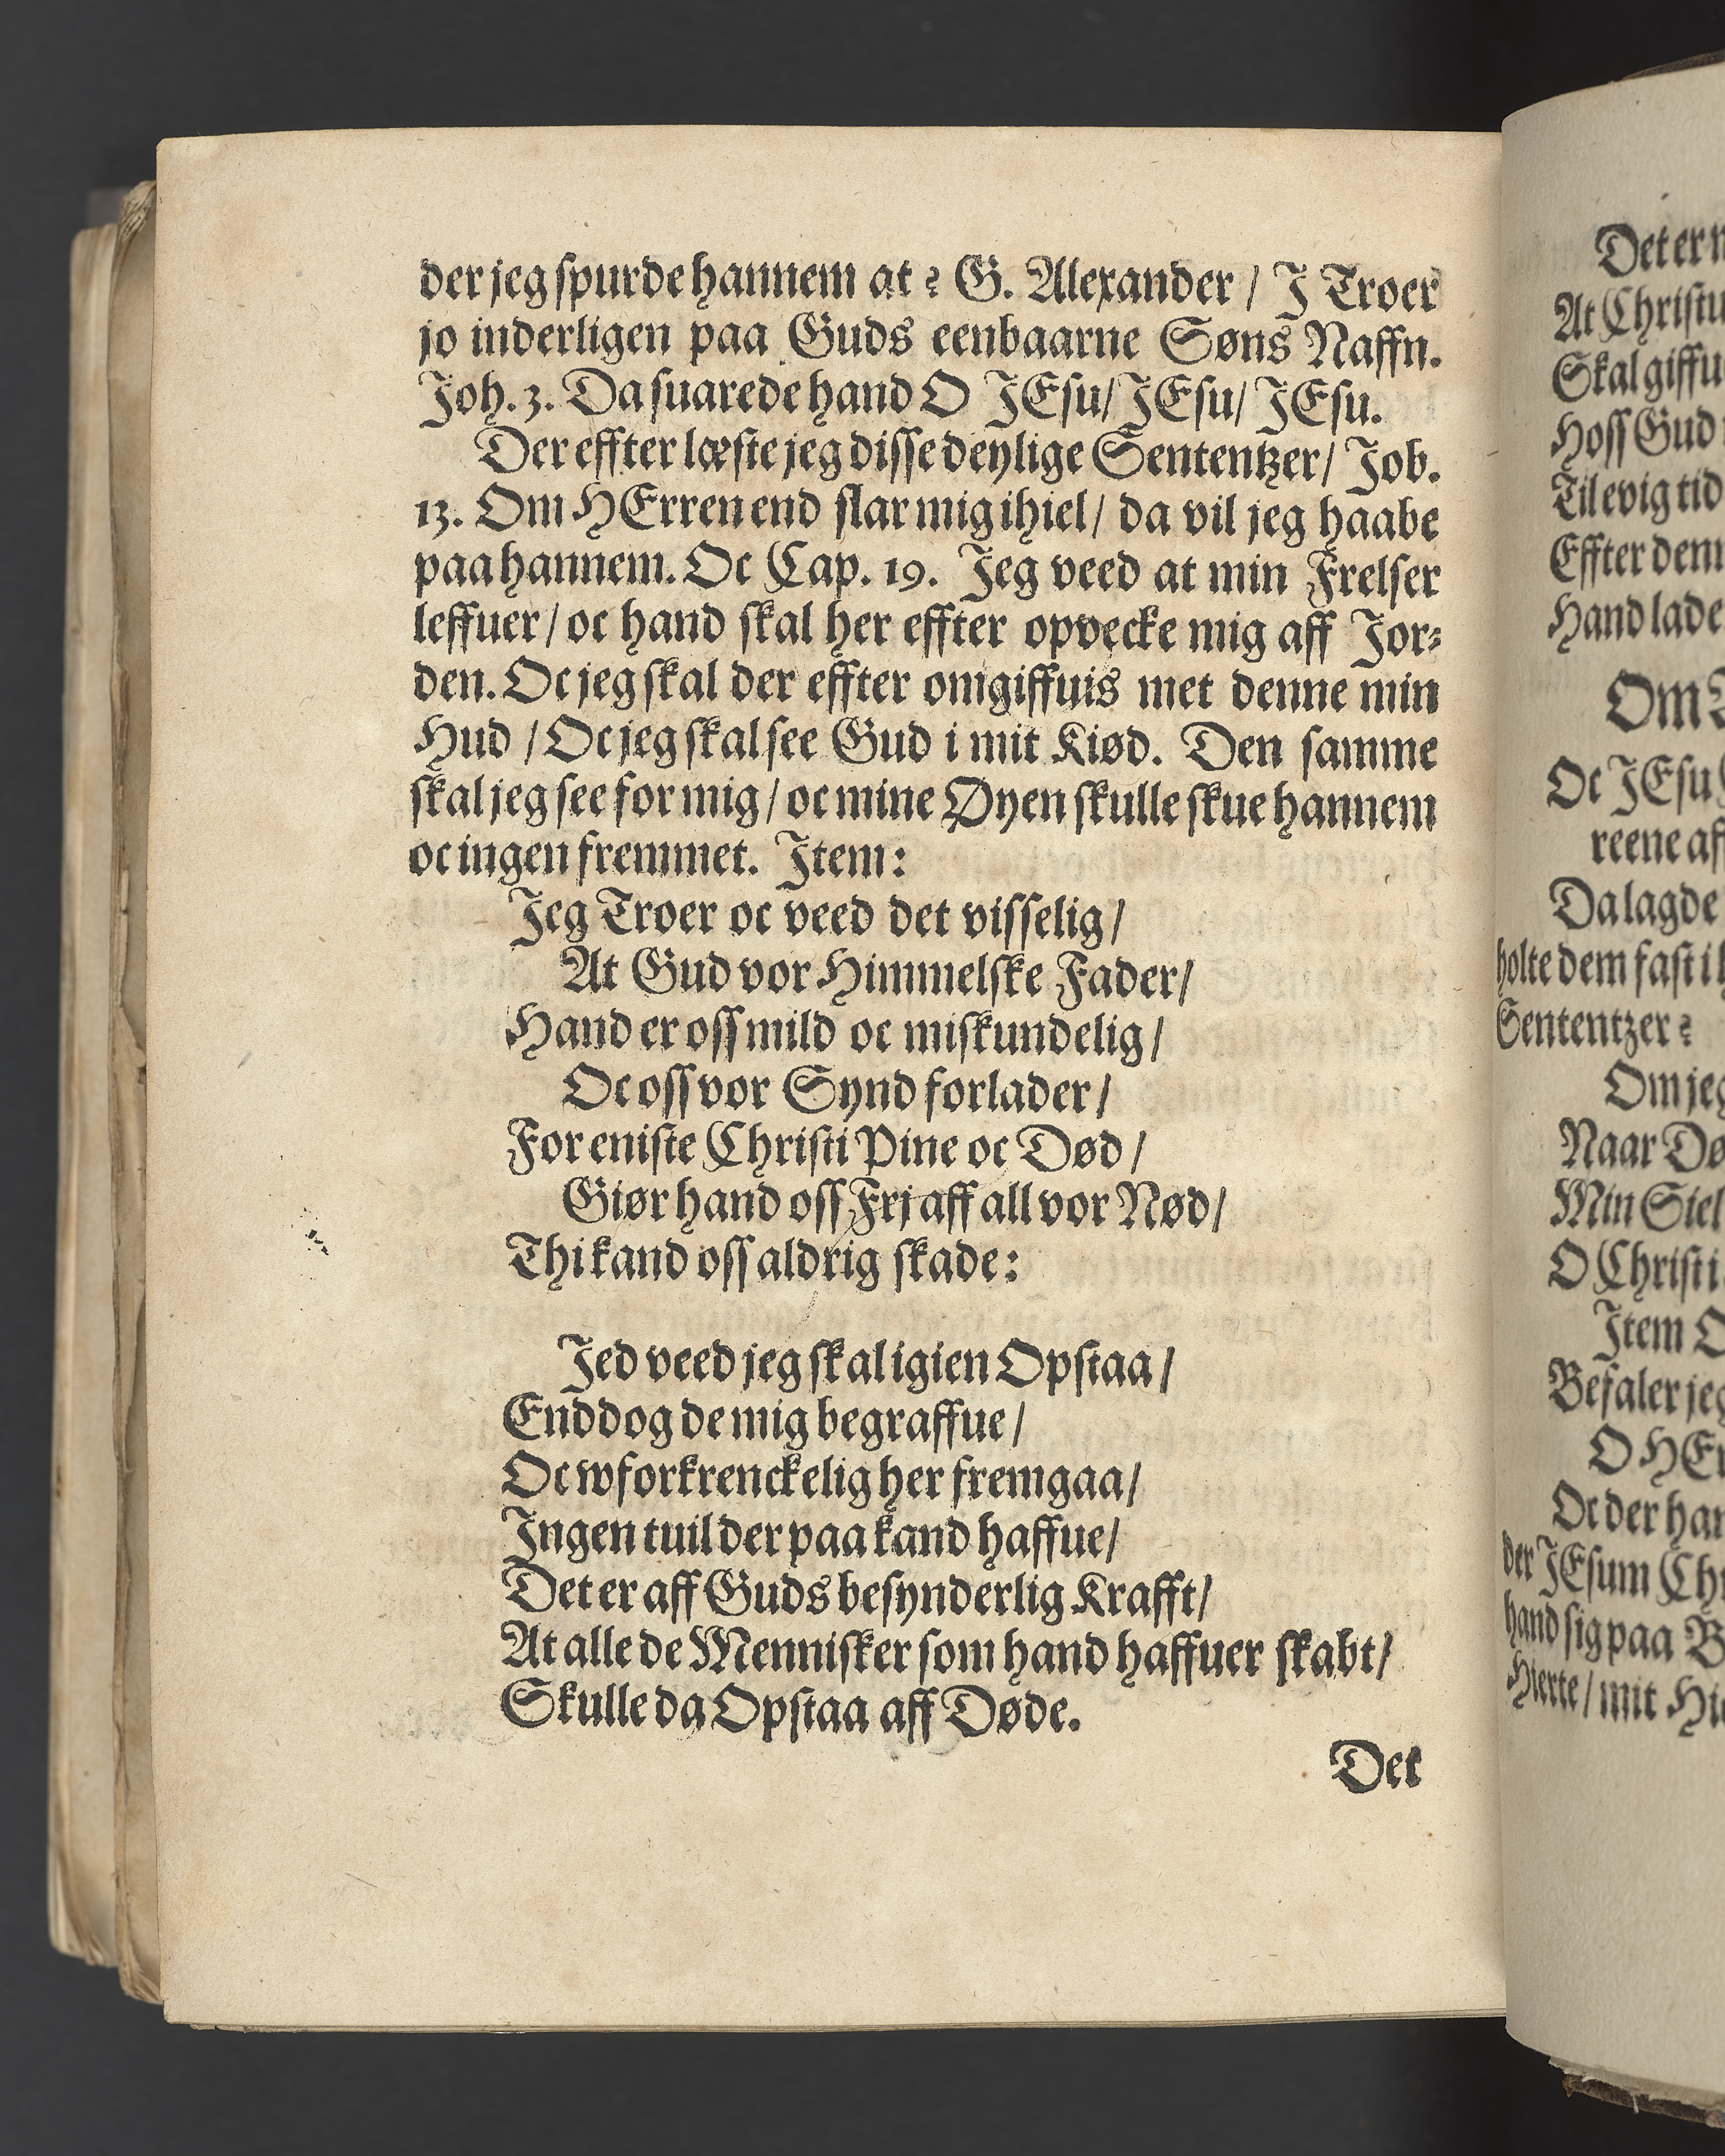 der jeg spurde hannem at? G. Alexander / J Troer
jo inderligen paa Guds eenbaarne Søns Naffn.
Joh. 3. Da suarede hand O JEsu/ JEsu/ JEsu.
Der effter læste jeg disse deylige Sententzer/ Job.
13. Om HErren end slar mig ihiel/ da vil jeg haabe
paa hannem. Oc Cap. 19. Jeg veed at min Frelser
leffuer/ oc hand skal her effter opvecke mig aff Jor-
den. Oc jeg skal der effter omgiffuis met denne min
Hud / Oc jeg skal see Gud i mit Kiød. Den samme
skal jeg see for mig/ oc mine Øyen skulle skue hannem
oc ingen fremmet. Jtem:
Jeg Troer oc veed det visselig/
At Gud vor Himmelske Fader/
Hand er oss mild oc miskundelig/
Oc oss vor Synd forlader/
For eniste Christi Pine oc Død/
Giør hand oss Frj aff all vor Nød/
Thi kand oss aldrig skade:
Jed veed jeg skal igien Opstaa/
End dog de mig begraffue/
Oc wforkrenckelig her fremgaa/
Jngen tuil der paa kand haffue/
Det er aff Guds besynderlig Krafft/
At alle de Mennisker som hand haffuer skabt/
Skulle da Opstaa aff Døde.
Det
Det er
At Christu
Skal giffu
Hoss Gud
Til evig tid
Effter denn
Hand lade
Om
Oc JEsu
reene af
Da lagde
holte dem fast i
Sententzer?
Om jeg
Naar Dø
Min Siel
O Christi
Jtem O
Befaler jeg
O HEr
Oc der han
der JEsum Chr
hand sig paa B
Hierte/ mit Hi